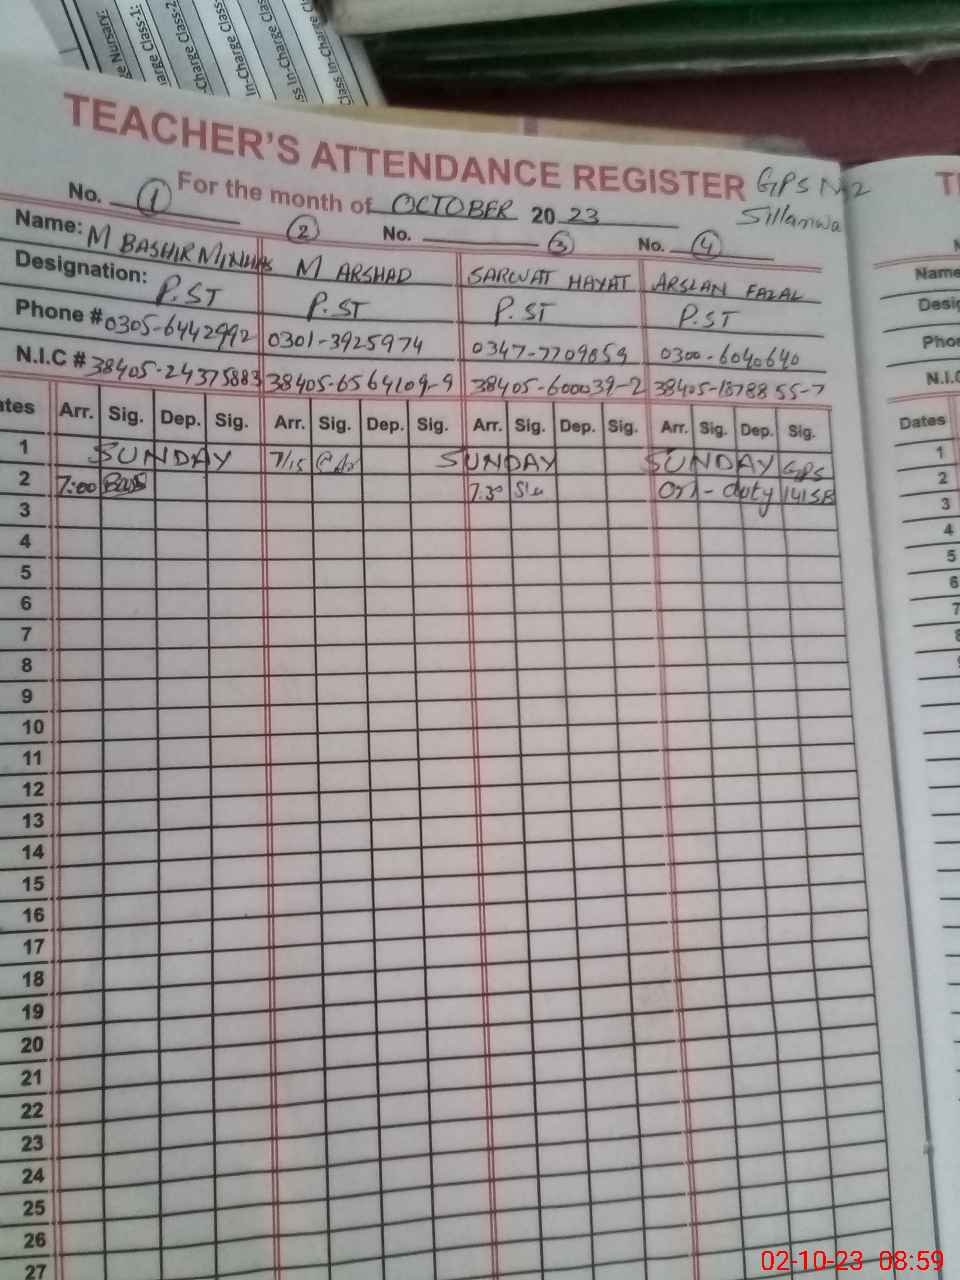 e Nursery:
arge Class-1:
Charge Class-2
In-Charge Class
ss In-Charge Cl
Class In-Charge C
TEACHER'S ATTENDANCE REGISTER GPS No 2
For the month of OCTOBER 20 23 Sillanwa
No. 1 2 No. 3 No. 4
Name: M BASHIR MINHAS M ARSHAD SARWAT HAYAT ARSLAN FAZAL
Designation: P.ST P.ST P.ST P.ST
Phone # 0305-6442992 0301-3925974 0347-7709659 0300-6040640
N.I.C # 38405-24375883 38405-6564109-9 38405-600039-2 38405-1378855-7
ates Arr. Sig. Dep. Sig. Arr. Sig. Dep. Sig. Arr. Sig. Dep. Sig. Arr. Sig. Dep. Sig.
1 SUNDAY 7/15 SUNDAY SUNDAY GPS
2 7:00 7:30 On - duty 141SB
3
4
5
6
7
8
9
10
11
12
13
14
15
16
17
18
19
20
21
22
23
24
25
26
27
T
Name
Desig
Phon
N.I.C
Dates
1
2
3
4
5
6
7
02-10-23 08:59